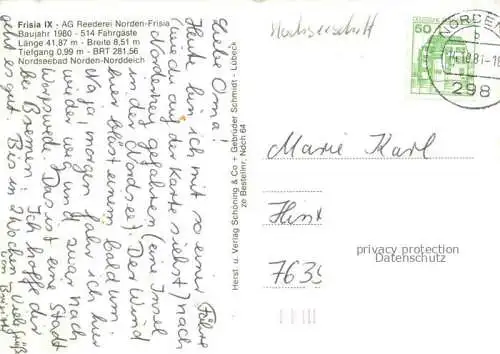 Frisia IX - AG Reederei Norden-Frisia
Baujahr 1980 - 514 Fahrgäste
Länge 41,87 m - Breite 8,51 m
Tiefgang 0,99 m - BRT 281,56
Nordseebad Norden-Norddeich
Liebe Oma!
Heute bin ich mit so einer Fähre
(wie du auf der Karte siehst) nach
Norderney gefahren (eine Insel
in der Nordsee). Der Wind
hier bläst einem bald um
Na ja, morgen fahr ich hier
wieder weg und zwar nach
Worpswede. Das ist eine Stadt
bei Bremen. Ich hoffe dir
geht es gut. Bis in 2 Wochen Viele Grüße
von
Herst. u. Verlag Schöning & Co + Gebrüder Schmidt - Lübeck
zo Bestellnr. Ndch 64
50
NORDEN
b
298
Marie Karl
7639
privacy protection
Datenschutz